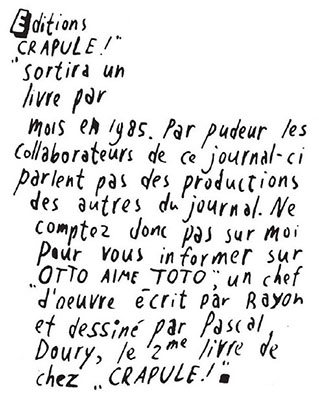 Editions
CRAPULE!"
"sortira un
livre par
mois en 1985. Par pudeur les
collaborateurs de ce journal-ci
parlent pas des productions
des autres du journal. Ne
comptez donc pas sur moi
pour vous informer sur
"OTTO AIME TOTO", un chef
d'oeuvre écrit par Rayon
et dessiné par Pascal
Doury, le 2me livre de
chez "CRAPULE!"